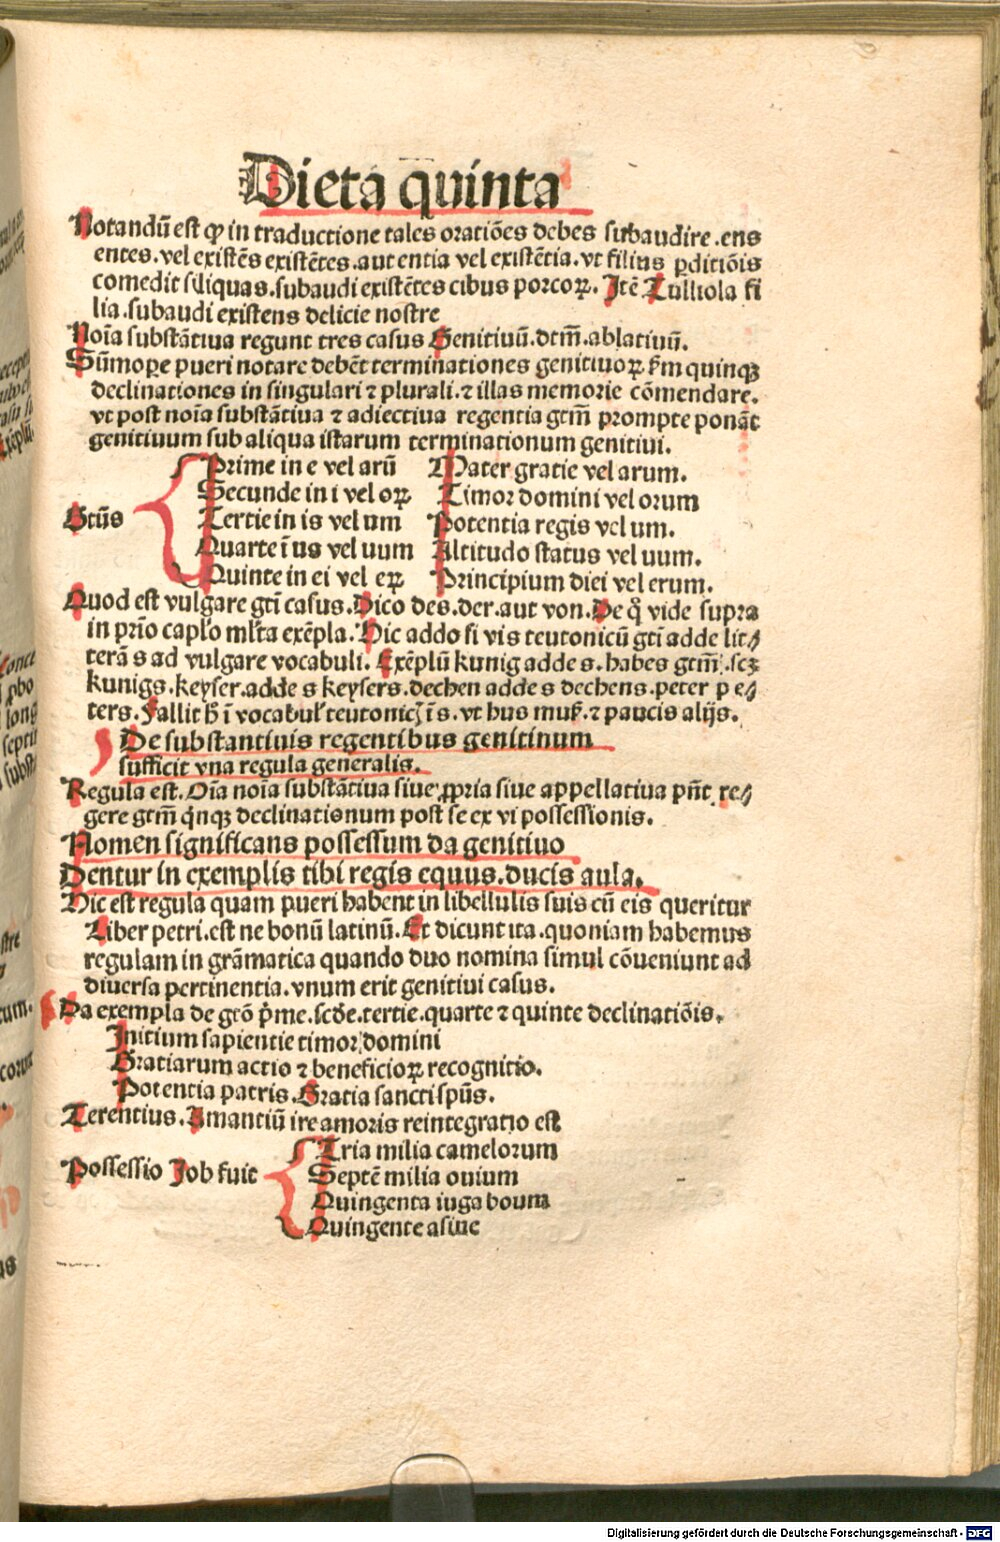 Dieta quinta
Notandū est ꝙ in traductione tales oratiões debes subaudire .ens
entes. vel existēs existētes. aut entia vel existētia. vt filius ꝑditiōis
comedit siliquas. subaudi existētes cibus porcoꝝ. Itē Tulliola fi
lia. subaudi existens delicie nostre
Noīa substātiua regunt tres casus Genitiuū. dtm̄. ablatiuū.
Sūmoꝑe pueri notare debēt terminationes genitiuoꝝ ẜm quinqꝫ
declinationes in singulari ⁊ plurali. ⁊ illas memorie cōmendare.
vt post noīa substātiua ⁊ adiectiua regentia gtm̄ prompte ponāt
genitiuum sub aliqua istarum terminationum genitiui.
Gtūs
Prime in e vel arū Mater gratie vel arum.
Secunde in i vel oꝝ Timor domini vel orum
Tertie in is vel um Potentia regis vel um.
Quarte ī us vel uum Altitudo status vel uum.
Quinte in ei vel eꝝ Principium diei vel erum.
Quod est vulgare gtī casus. Dico des. der. aut von. De qͦ vide supra
in prīo caplo mlta exēpla. Hic addo si vis teutonicū gtī adde lit⸗
terā s ad vulgare vocabuli. Exēplū kunig adde s. habes gtm̄. scꝫ
kunigs. keyser. adde s keysers. dechen adde s dechens. peter pe⸗
ters. Fallit h̄ ī vocabuł teutonicꝭ ī s. vt hus muſ. ⁊ paucis alijs.
De substantiuis regentibus genitinum
sufficit vna regula generalis.
Regula est. Oīa noīa substātiua siue ꝓpria siue appellatiua pn̄t re⸗
gere gtm̄ qͥnqꝫ declinationum post se ex vi possessionis.
Nomen significans possessum da genitiuo
Dentur in exemplis tibi regis equus. ducis aula.
Hic est regula quam pueri habent in libellulis suis cū eis queritur
Liber petri. est ne bonū latinū. Et dicunt ita. quoniam habemus
regulam in grāmatica quando duo nomina simul cōueniunt ad
diuersa pertinentia. vnum erit genitiui casus.
Da exempla de gtō pͥme. scd̄e. tertie. quarte ⁊ quinte declinatiōis.
Initium sapientie timor domini
Gratiarum actio ⁊ beneficioꝝ recognitio.
Potentia patris. Gratia sancti spūs.
Terentius. Amantiū ire amoris reintegratio est
Possessio Job fuit
Tria milia camelorum
Septē milia ouium
Quingenta iuga boum
Quingente asine
Digitalisierung gefördert durch die Deutsche Forschungsgemeinschaft - DFG